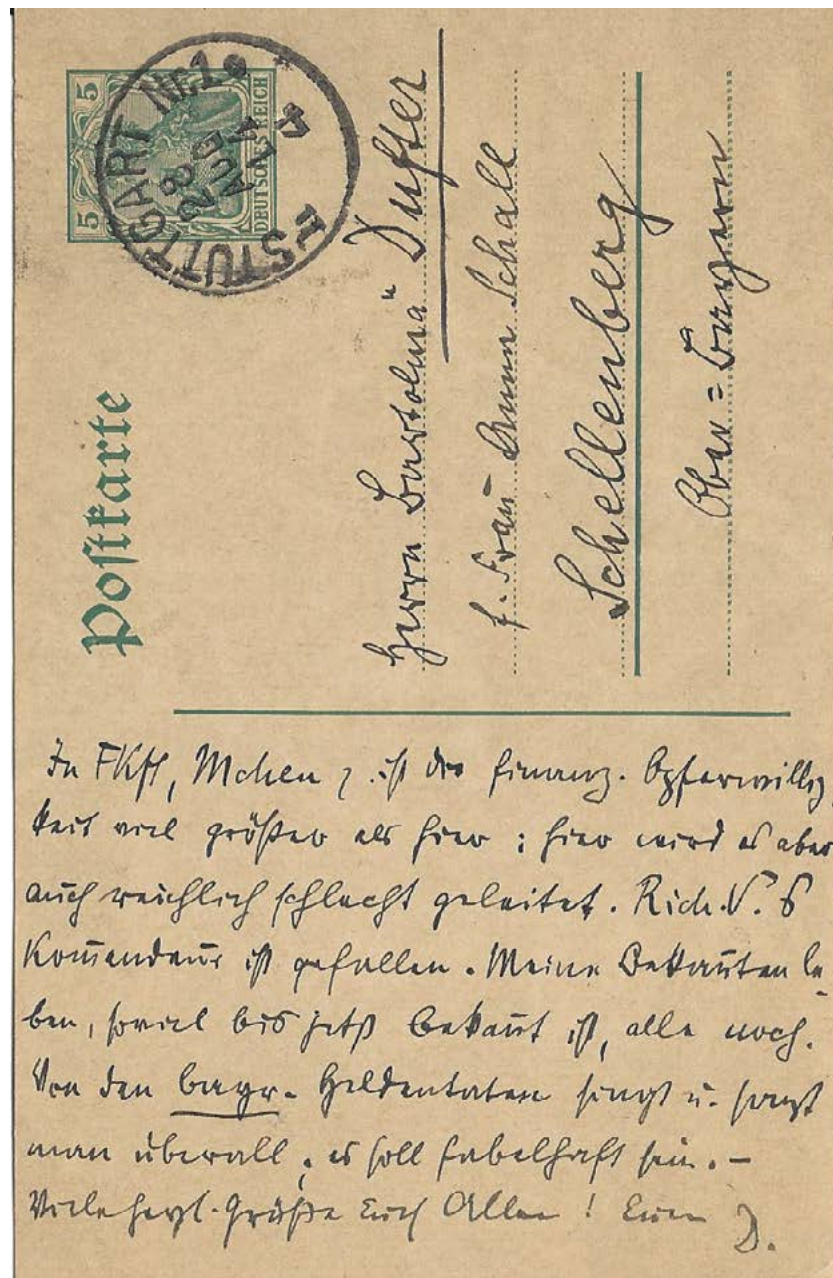 Postkarte
5 5
DEUTSCHES REICH
STUTTGART Nr. 1
28
AUG
14
4
Herrn Bartolmä Dufter
z. Frau Schall
Schellenberg
Ober=Bayern
In FKft, Mchen ist die finanz. Opferwillig
keit viel größer als hier; hier wird es aber
auch reichlich schlecht geleitet. Rich. V.s
Kom̄andeur ist gefallen. Meine Bekan̄ten le-
ben, soviel bis jetzt bekan̄t ist, alle noch.
Von den bayr. Heldentaten singt u. sagt
man überall; es soll fabelhaft sein. –
Viele herzl. Grüße Euch Allen! Euer D.